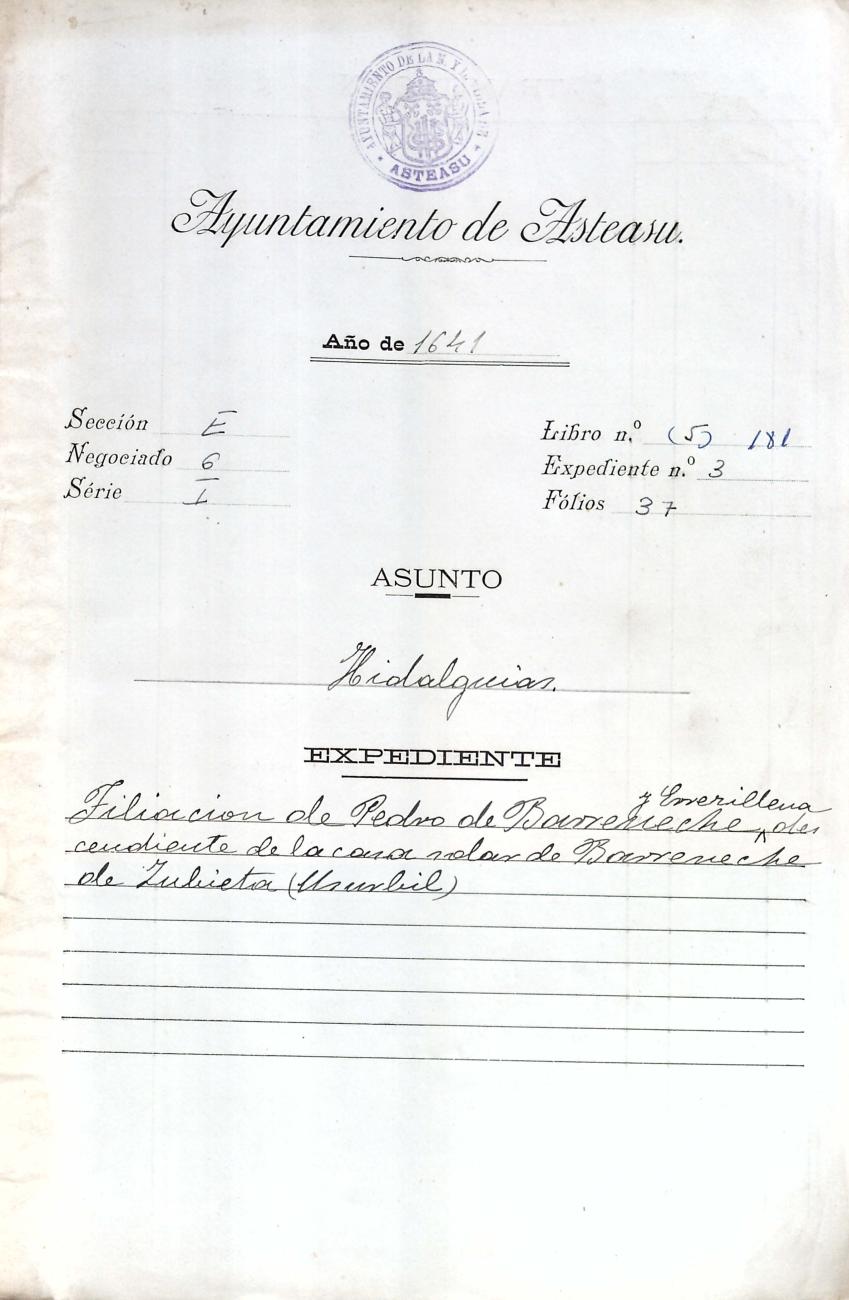 AYUNTAMIENTO DE LA N. Y L. VILLA DE
ASTEASU
Ayuntamiento de Asteasu.
Año de 1641
Sección E
Negociado 6
Série I
Libro n.º (5) 181
Expediente n.º 3
Fólios 37
ASUNTO
Hidalguias.
EXPEDIENTE
y Errerillena
Filiacion de Pedro de Barreneche des
cendiente de la casa solar de Barreneche
de Zubieta (Usurbil)